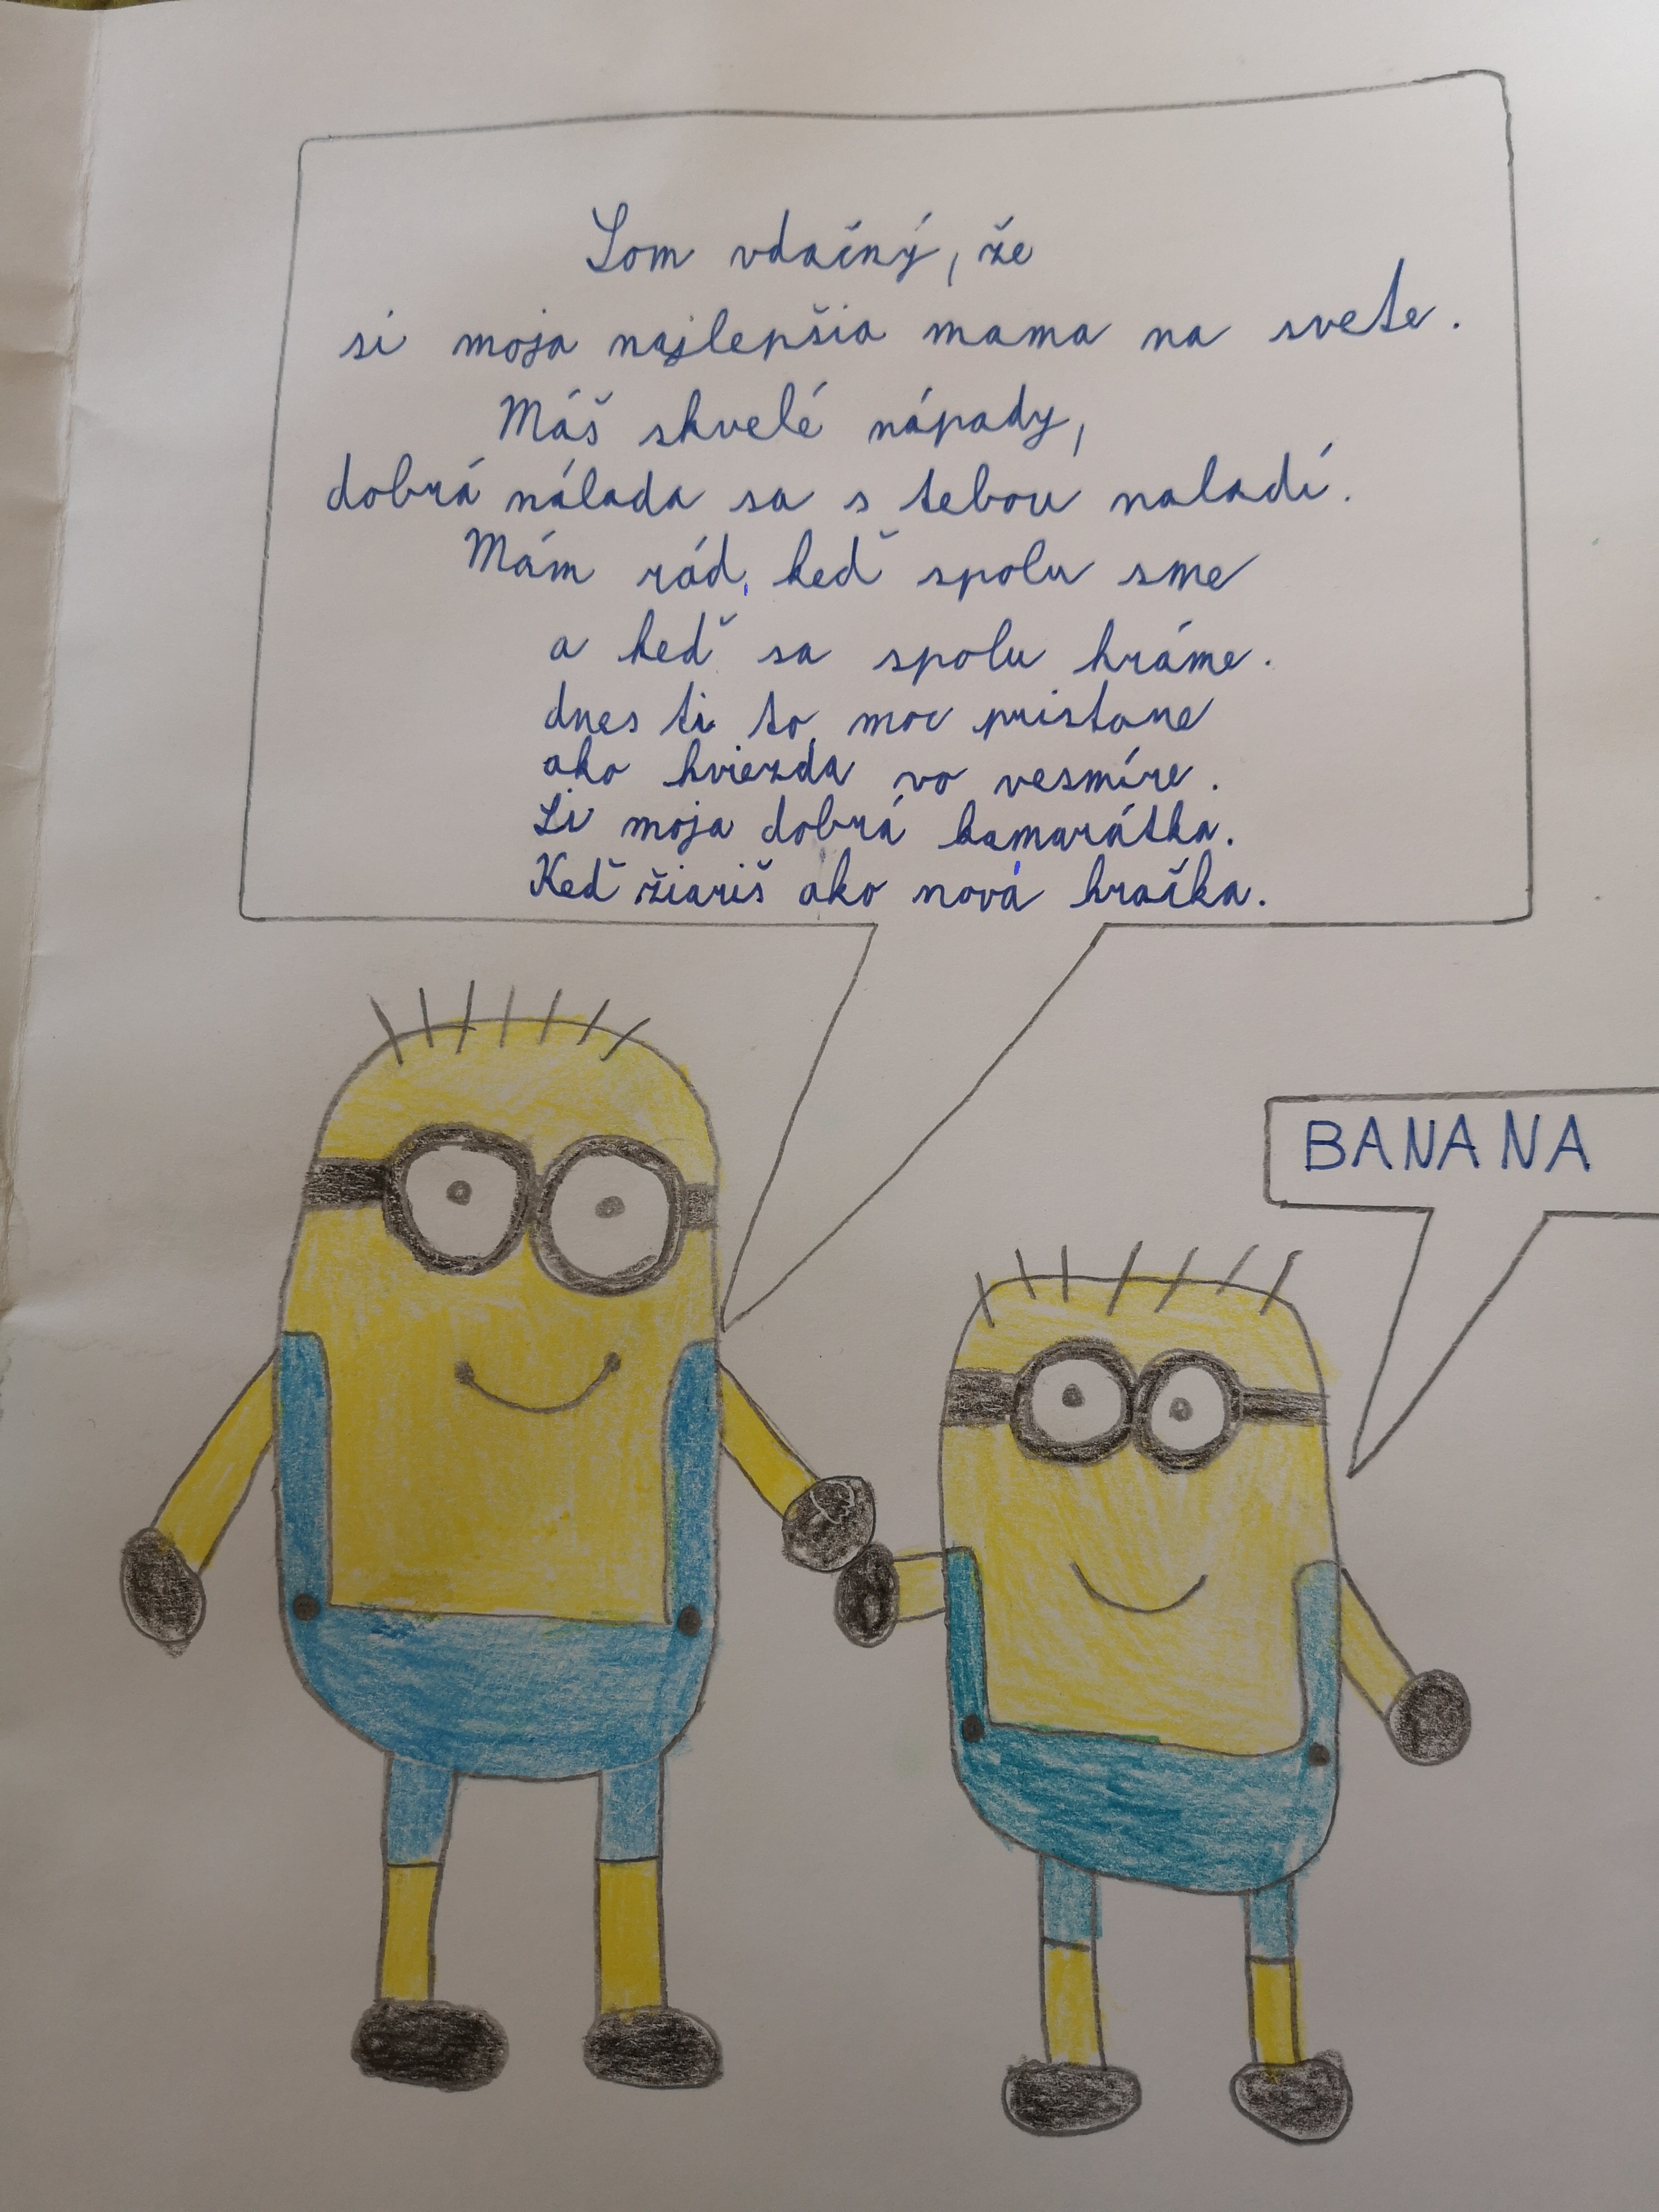 Som vdačný, že
si moja najlepšia mama na svete.
Máš skvelé nápady,
dobrá nálada sa s tebou naladí.
Mám rád, keď spolu sme
a keď sa spolu hráme.
dnes ti to moc pristane
ako hviezda vo vesmíre.
Si moja dobrá kamarátka.
Keď žiariš ako nová hračka.
BANANA